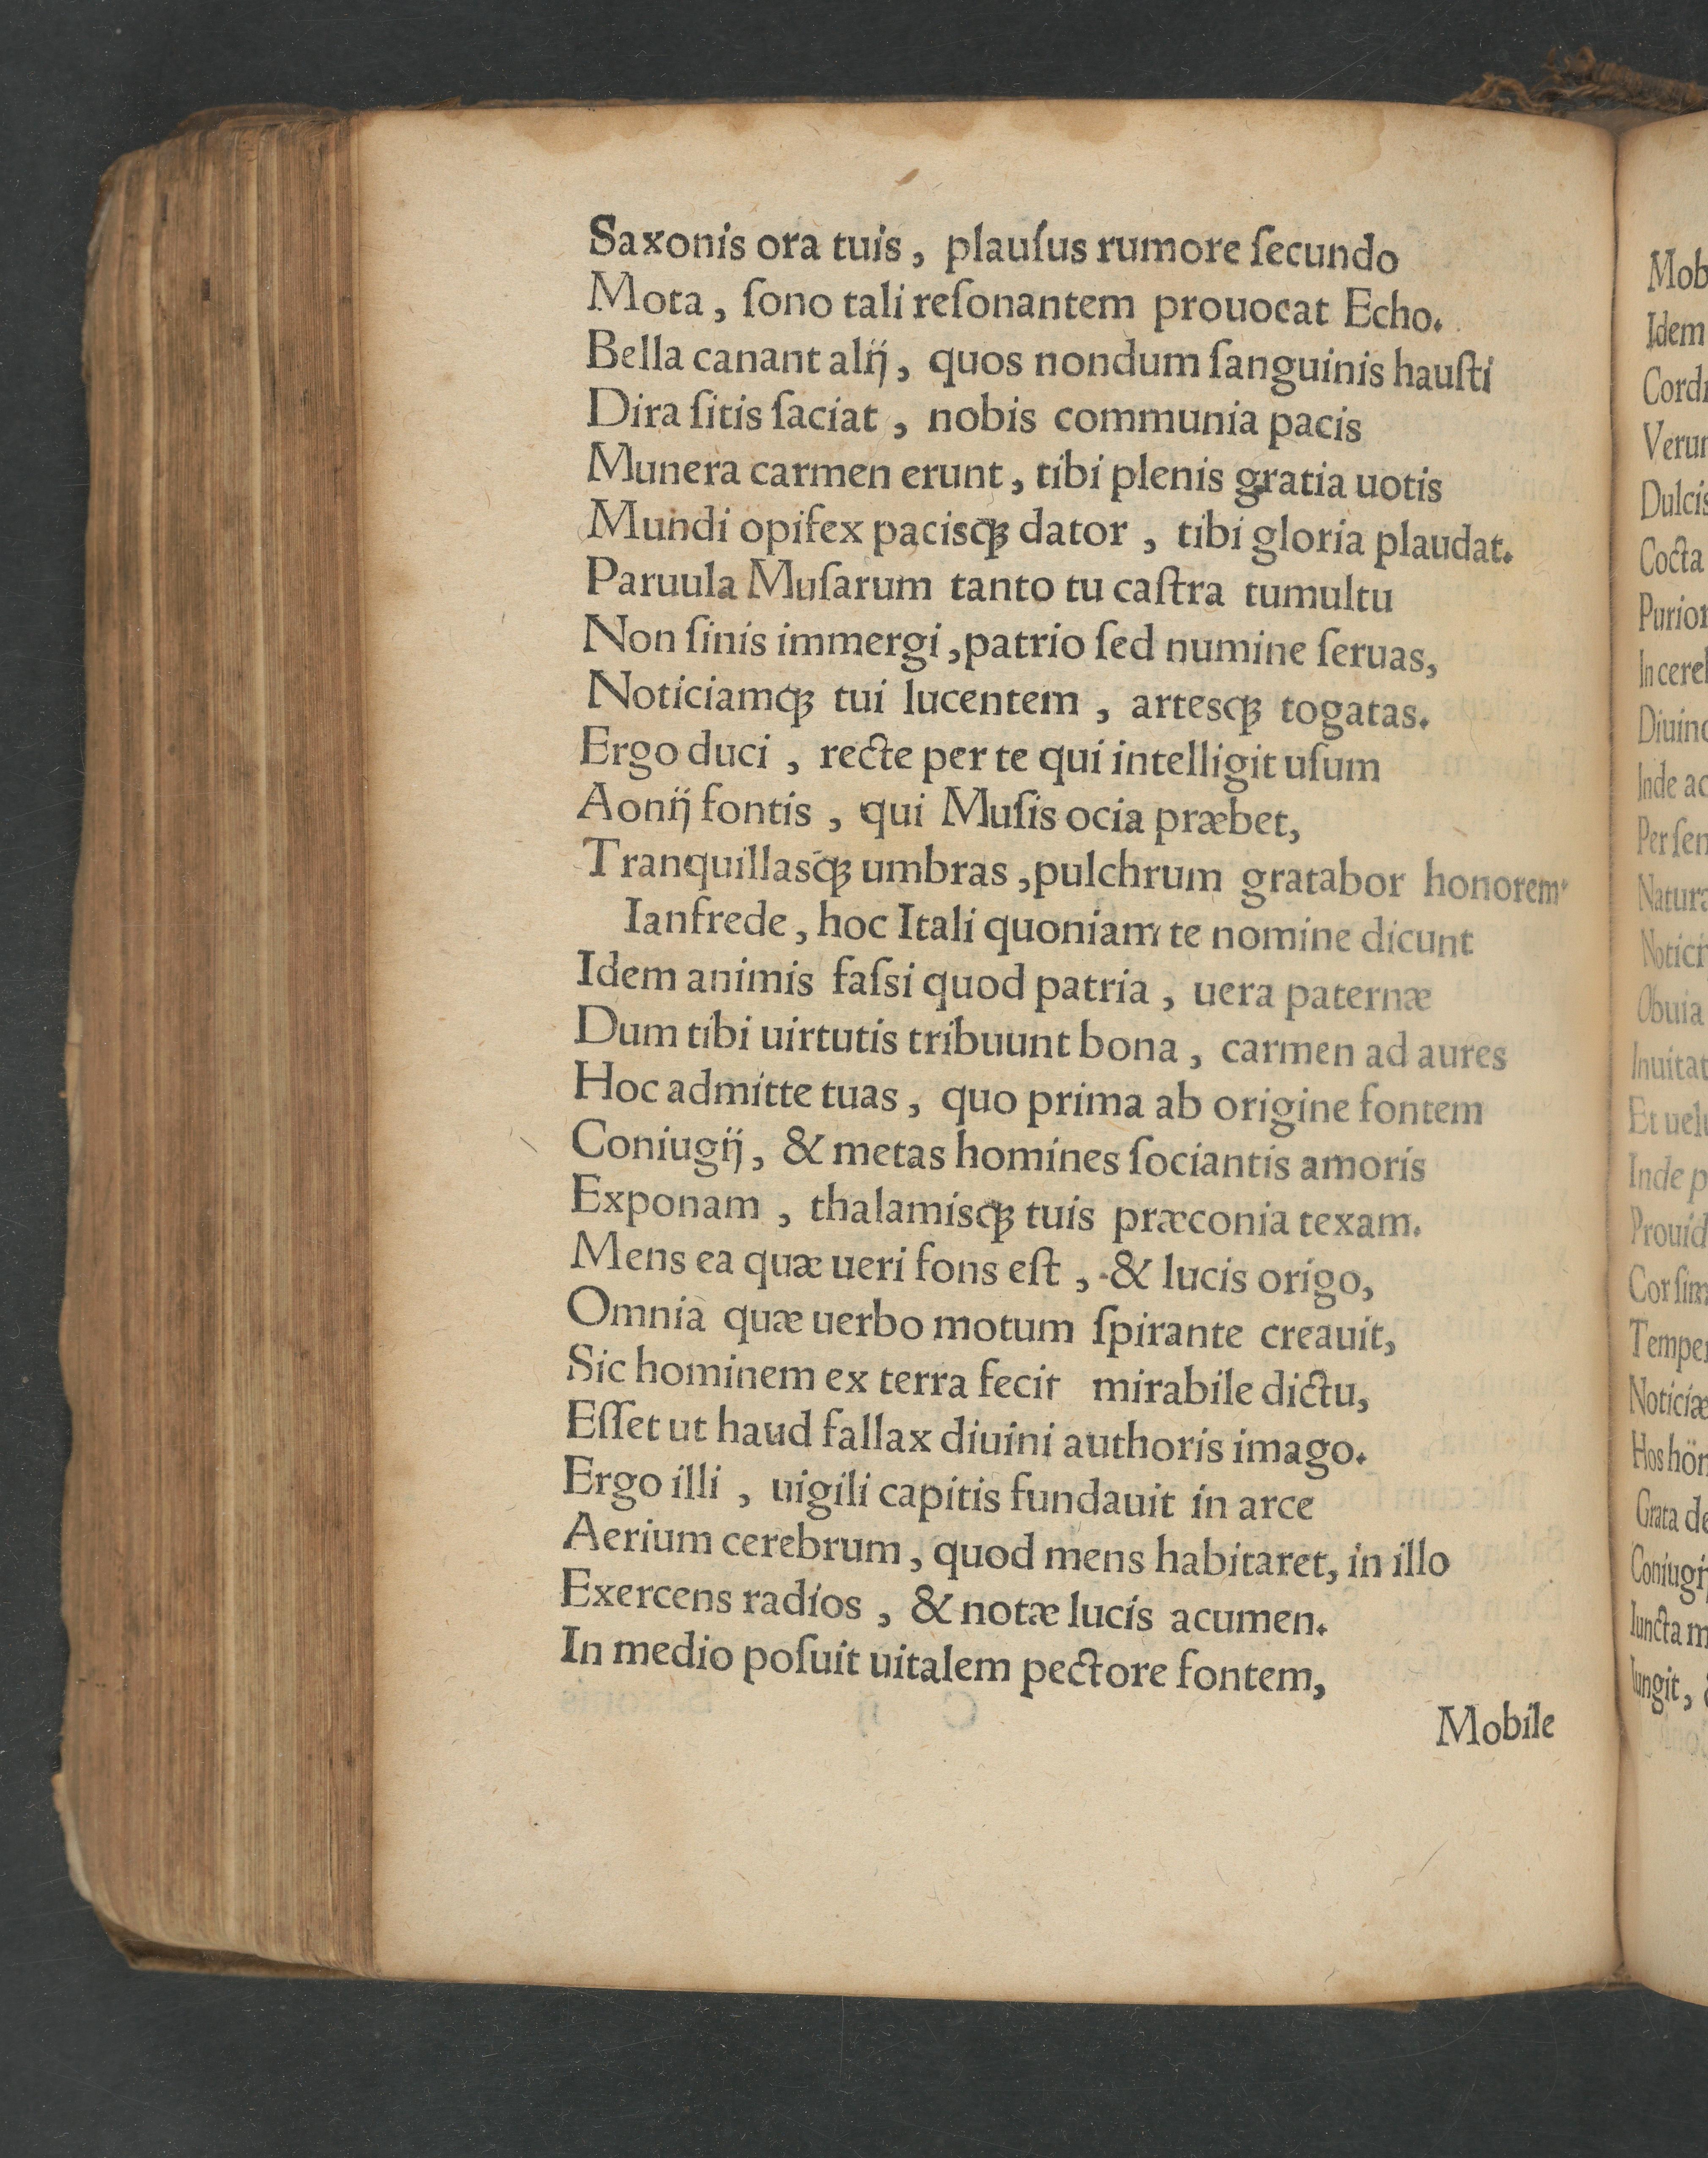 Saxonis ora tuis, plauſus rumore ſecundo
Mota, ſono tali reſonantem prouocat Echo.
Bella canant alij, quos nondum ſanguinis hauſti
Dira ſitis ſaciat, nobis communia pacis
Munera carmen erunt, tibi plenis gratia uotis
Mundi opifex pacisqꝫ dator, tibi gloria plaudat.
Paruula Muſarum tanto tu caſtra tumultu
Non ſinis immergi, patrio ſed numine ſeruas,
Noticiamqꝫ tui lucentem, artesqꝫ togatas.
Ergo duci, recte per te qui intelligit uſum
Aonij fontis, qui Muſis ocia præbet,
Tranquillasqꝫ umbras, pulchrum gratabor honorem
Ianfrede, hoc Itali quoniam te nomine dicunt
Idem animis faſsi quod patria, uera paternæ
Dum tibi uirtutis tribuunt bona, carmen ad aures
Hoc admitte tuas, quo prima ab origine fontem
Coniugij, & metas homines ſociantis amoris
Exponam, thalamisqꝫ tuis præconia texam.
Mens ea quæ ueri fons eſt, & lucis origo,
Omnia quæ uerbo motum ſpirante creauit,
Sic hominem ex terra fecit mirabile dictu,
Eſſet ut haud fallax diuini authoris imago.
Ergo illi, uigili capitis fundauit in arce
Aerium cerebrum, quod mens habitaret, in illo
Exercens radios, & notæ lucis acumen.
In medio poſuit uitalem pectore fontem,
Mobile
Idem
Cocta
Inde
Obuia
Et
Inde
Noticiæ
Grata
Iuncta